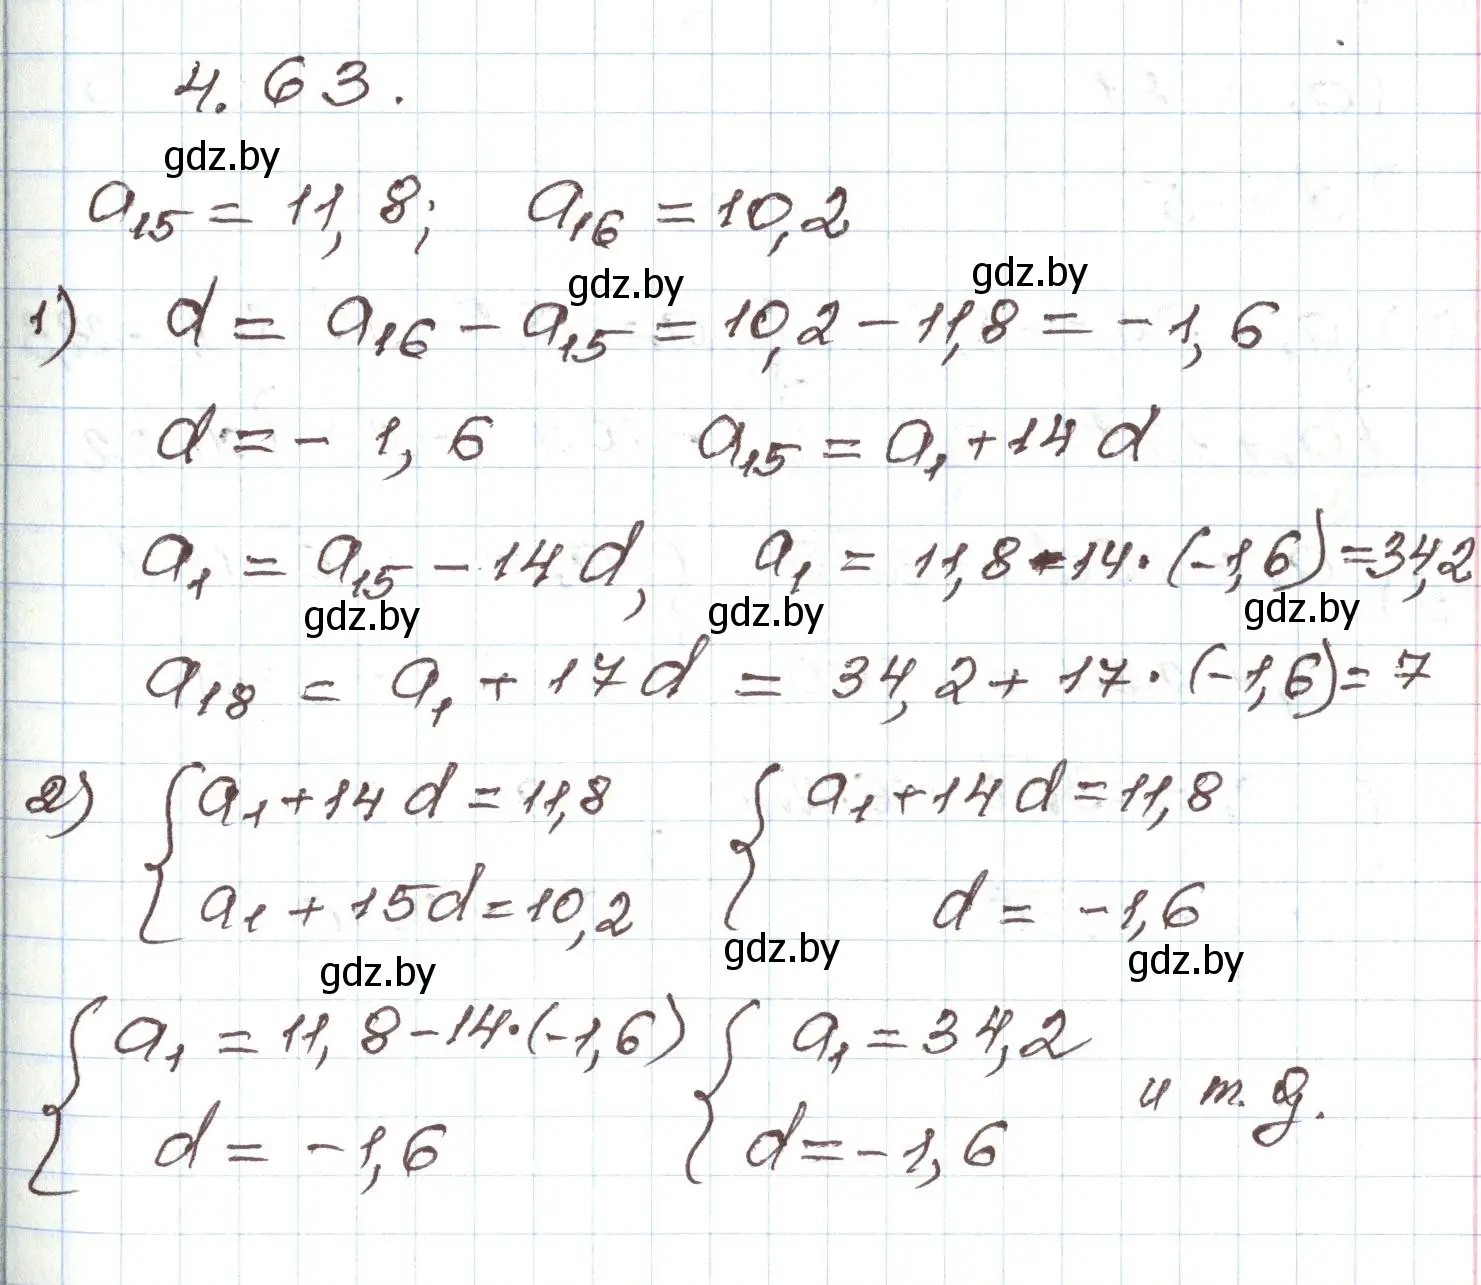 4.63.
gdz.by
a₁₅ = 11,8; a₁₆ = 10,2
gdz.by gdz.by
1) d = a₁₆ - a₁₅ = 10,2 - 11,8 = -1,6
d = -1,6 a₁₅ = a₁ + 14d
a₁ = a₁₅ - 14d, a₁ = 11,8 - 14·(-1,6) = 34,2
gdz.by gdz.by gdz.by
a₁₈ = a₁ + 17d = 34,2 + 17·(-1,6) = 7
2) { a₁ + 14d = 11,8 { a₁ + 14d = 11,8
a₁ + 15d = 10,2 d = -1,6
gdz.by gdz.by gdz.by
{ a₁ = 11,8 - 14·(-1,6) { a₁ = 34,2 и т.д.
d = -1,6 d = -1,6